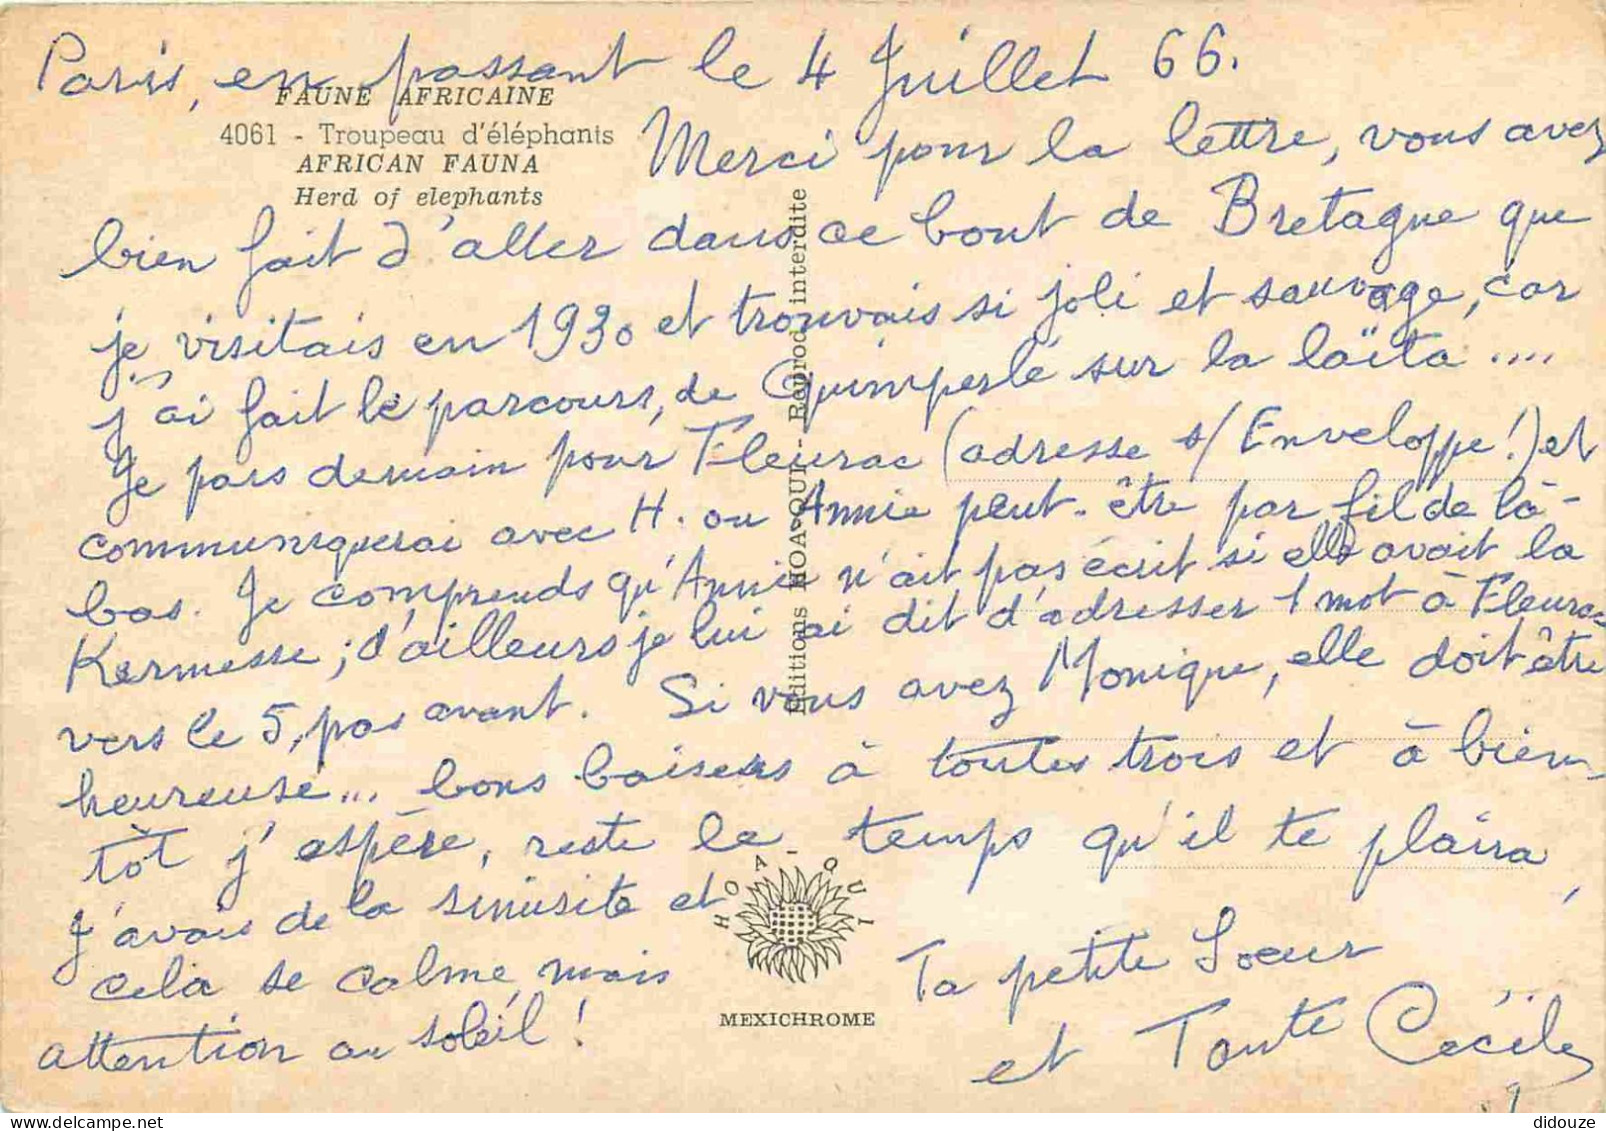 Paris, en passant le 4 Juillet 66.
FAUNE AFRICAINE
4061 - Troupeau d'éléphants
AFRICAN FAUNA
Herd of elephants
Merci pour la lettre, vous avez
bien fait d'aller dans ce bout de Bretagne que
je visitais en 1930 et trouvais si joli et sauvage, car
j'ai fait le parcours, de Quimperlé sur la laïta ....
Je pars demain pour Fleurac (adresse s/ Enveloppe!) et
communiquerai avec H. ou Annie peut-être par fil de là-
bas. Je comprends qu'Annie n'ait pas écrit si elle avait la
Kermesse; d'ailleurs je lui ai dit d'adresser 1 mot à Fleurac
vers le 5, pas avant. Si vous avez Monique, elle doit être
heureuse... bons baisers à toutes trois et à bien-
tôt j'espère, reste le temps qu'il te plaira,
J'avais de la sinusite et
cela se calme, mais
attention au soleil!
Ta petite Soeur
et Tante Cécile
Editions HOA-QUI - Reprod. interdite
HOA-QUI
MEXICHROME
didouze